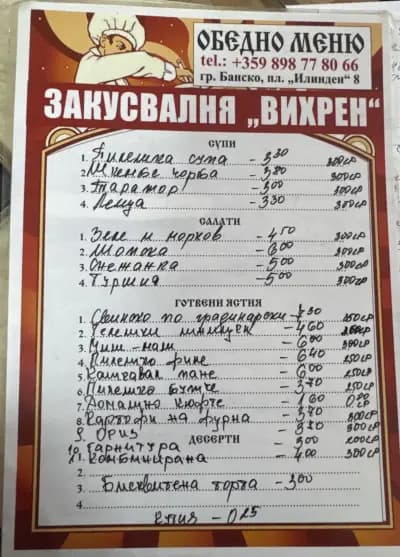 ОБЕДНО МЕНЮ
tel.: +359 898 77 80 66
гр. Банско, пл. „Илинден“ 8
ЗАКУСВАЛНЯ „ВИХРЕН“
СУПИ
1. Пилешка супа - 330 300гр
2. Шкембе чорба - 380 300гр
3. Таратор - 300 300гр
4. Леща - 330 300гр
САЛАТИ
1. Зеле и морков - 450 300гр
2. Шопска - 600 300гр
3. Снежанка - 500 300гр
4. Туршия - 500 300гр
ГОТВЕНИ ЯСТИЯ
1. Свинско по градинарски 350гр
2. Телешки - 460
3. - 600 300гр
4. Пилешко - 640 250гр
5. Кашкавал пане - 600 250гр
6. Пилешко бутче - 370 250гр
7. Домашно кюфте - 160
8. Картофи на фурна - 370 300гр
9. Ориз - 350 300гр
ДЕСЕРТИ
10. Гарнитура - 300 200гр
11. Комбинирана - 400 300гр
2.
3. Бисквитена торта - 300
4.
- 025